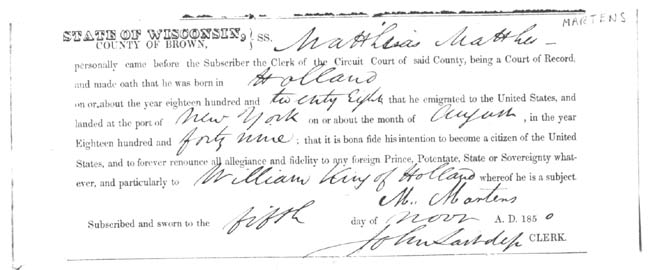 MARTENS
STATE OF WISCONSIN,
COUNTY OF BROWN, } SS. Matthias
personally came before the Subscriber the Clerk of the Circuit Court of said County, being a Court of Record,
and made oath that he was born in Holland
on or about the year eighteen hundred and twenty Eight that he emigrated to the United States, and
landed at the port of New York on or about the month of August, in the year
Eighteen hundred and forty nine; that it is bona fide his intention to become a citizen of the United
States, and to forever renounce all allegiance and fidelity to any foreign Prince, Potentate, State or Sovereignty what-
ever, and particularly to William King of Holland whereof he is a subject.
M. Martens
Subscribed and sworn to the fifth day of Novr A. D. 1850
John CLERK.